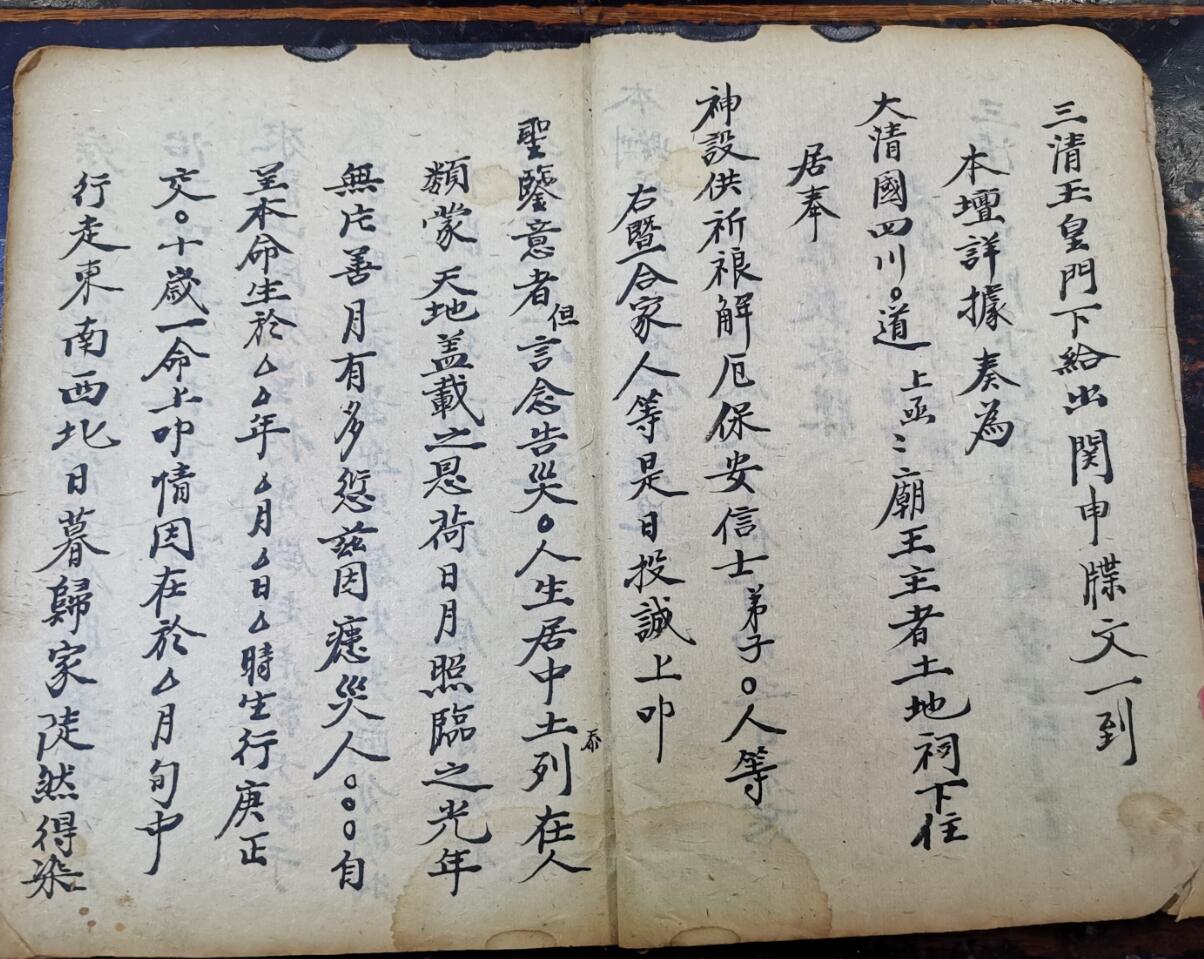 三清玉皇門下給出関申牒文一到
本壇詳據奏為
大清國四川○道上函〻廟王主者土地祠下住
居奉
神設供祈禳解厄保安信士弟子○人等
右暨合家人等是日投誠上叩
聖鑒意者但言念告災○人生居中土忝列在人
類蒙天地盖載之恩荷日月照臨之光年
無片善月有多愆兹因瘧災人○○○自
呈本命生於厶厶年厶月厶日厶時生行庚正
交○十歲一命上叩情因在於厶月旬中
行走東南西北日暮歸家陡然得染